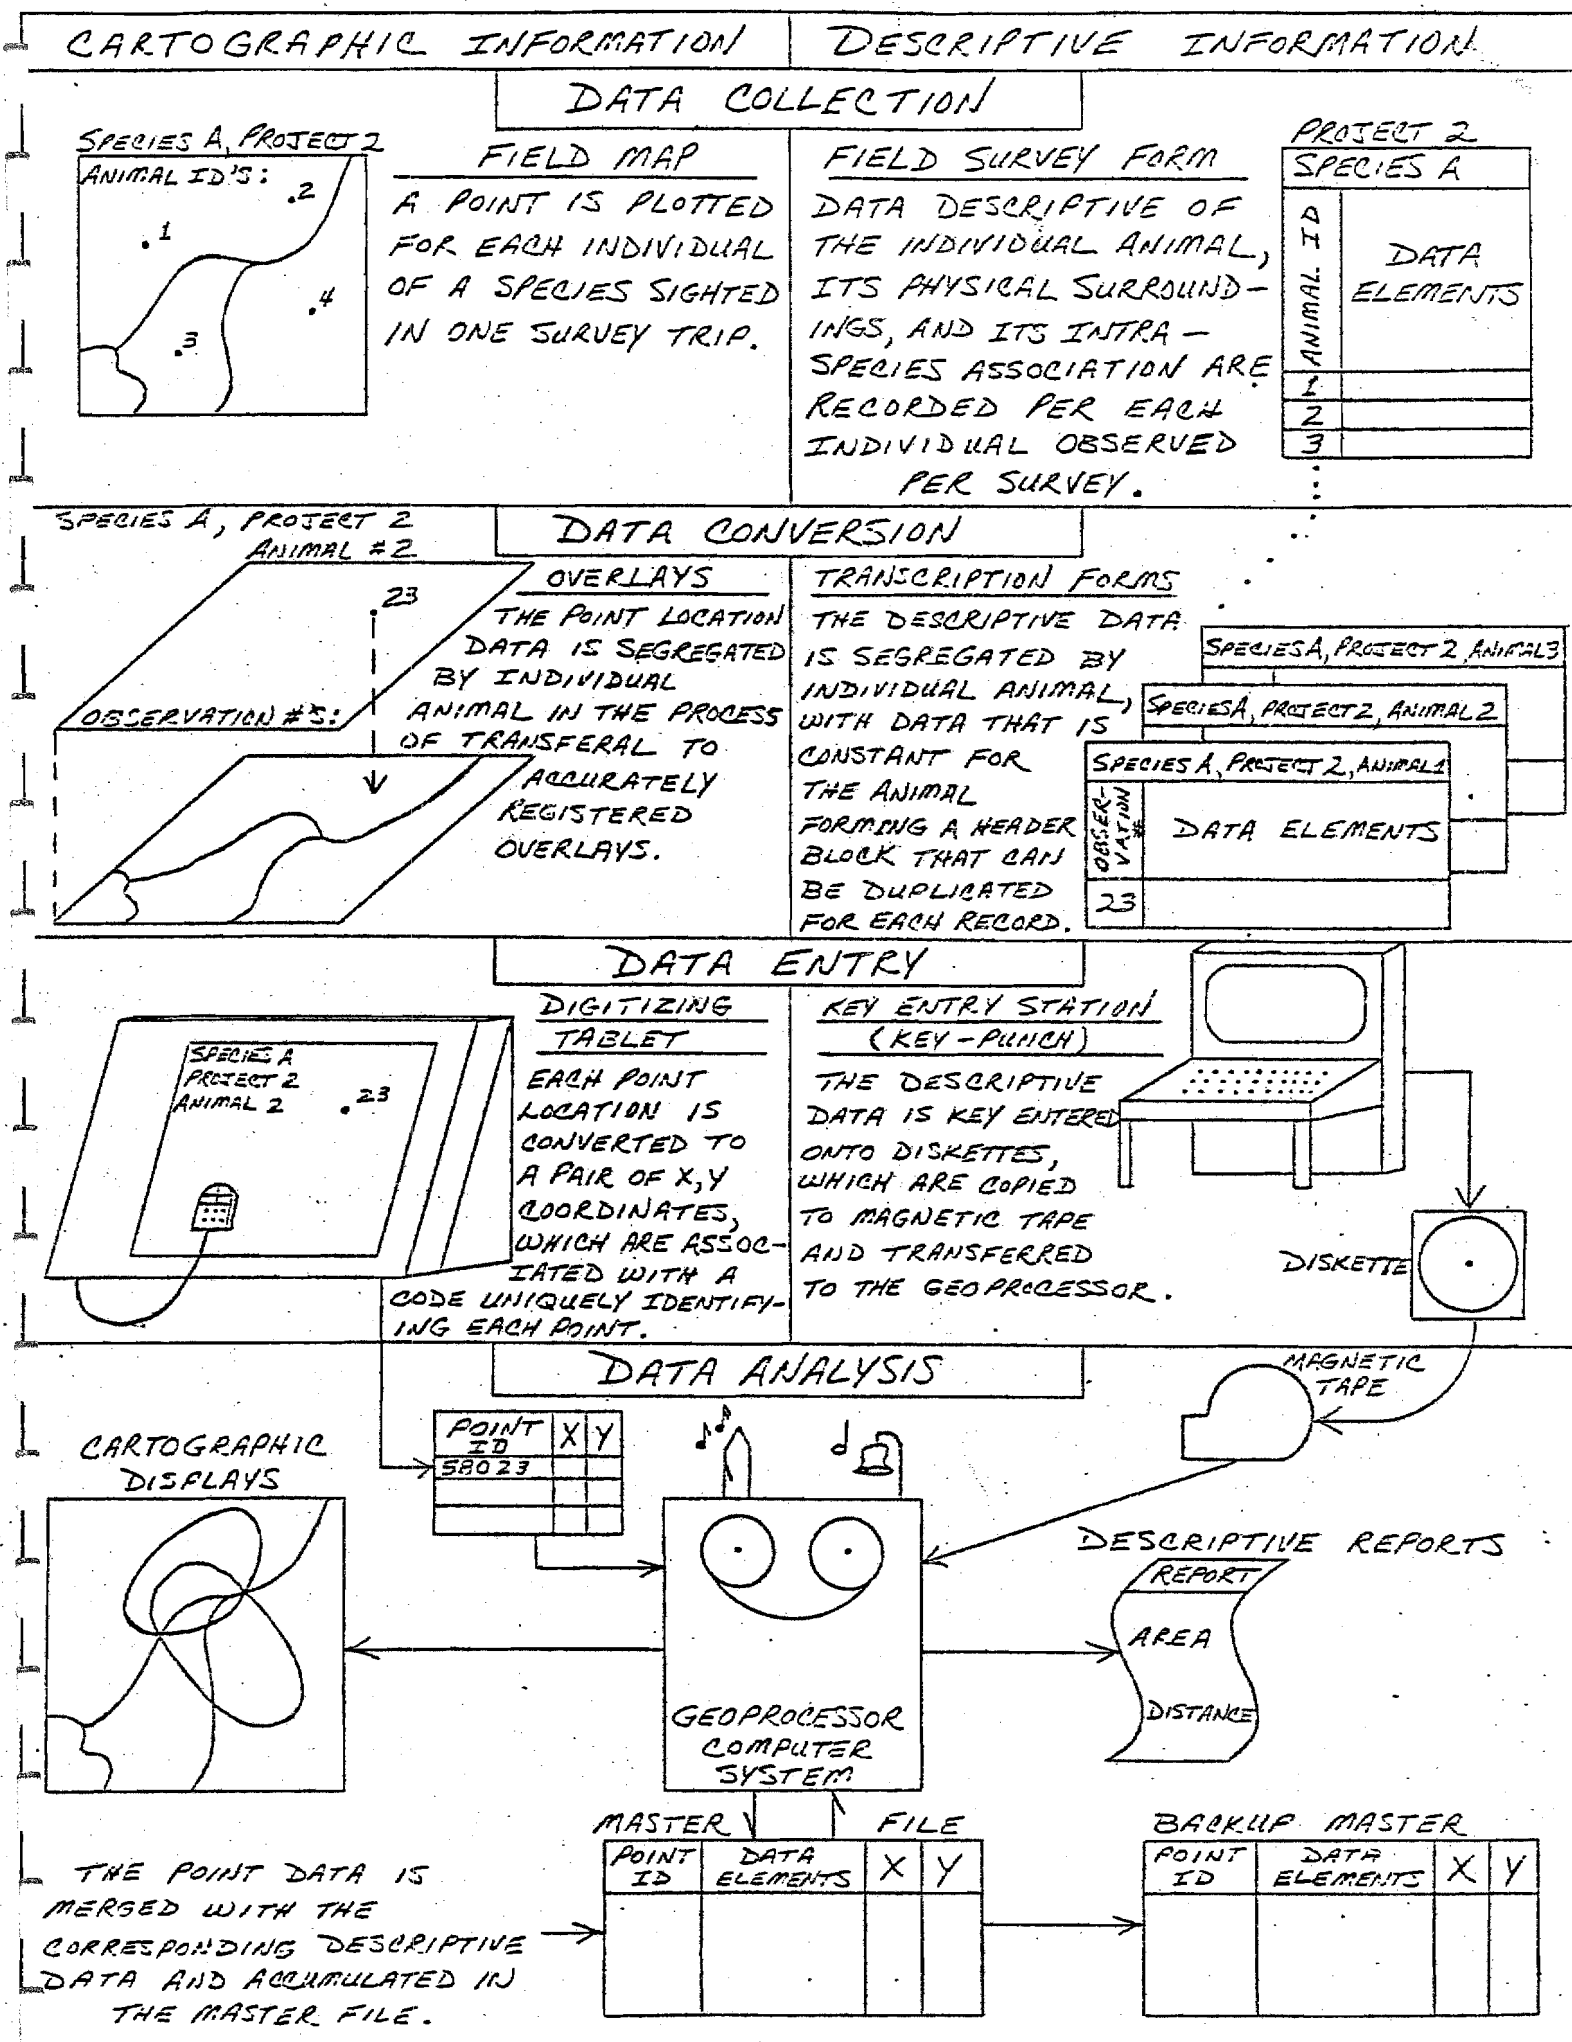 CARTOGRAPHIC INFORMATION
DESCRIPTIVE INFORMATION
DATA COLLECTION
SPECIES A, PROJECT 2
ANIMAL ID'S:
1
2
3
4
FIELD MAP
A POINT IS PLOTTED
FOR EACH INDIVIDUAL
OF A SPECIES SIGHTED
IN ONE SURVEY TRIP.
FIELD SURVEY FORM
DATA DESCRIPTIVE OF
THE INDIVIDUAL ANIMAL,
ITS PHYSICAL SURROUND-
INGS, AND ITS INTRA-
SPECIES ASSOCIATION ARE
RECORDED PER EACH
INDIVIDUAL OBSERVED
PER SURVEY.
PROJECT 2
SPECIES A
ANIMAL ID
DATA
ELEMENTS
1
2
3
DATA CONVERSION
SPECIES A, PROJECT 2
ANIMAL #2
23
OBSERVATION #'S:
OVERLAYS
THE POINT LOCATION
DATA IS SEGREGATED
BY INDIVIDUAL
ANIMAL IN THE PROCESS
OF TRANSFERAL TO
ACCURATELY
REGISTERED
OVERLAYS.
TRANSCRIPTION FORMS
THE DESCRIPTIVE DATA
IS SEGREGATED BY
INDIVIDUAL ANIMAL,
WITH DATA THAT IS
CONSTANT FOR
THE ANIMAL
FORMING A HEADER
BLOCK THAT CAN
BE DUPLICATED
FOR EACH RECORD.
SPECIES A, PROJECT 2, ANIMAL 3
SPECIES A, PROJECT 2, ANIMAL 2
SPECIES A, PROJECT 2, ANIMAL 1
OBSER-
VATION
#
DATA ELEMENTS
23
DATA ENTRY
SPECIES A
PROJECT 2
ANIMAL 2
23
DIGITIZING
TABLET
EACH POINT
LOCATION IS
CONVERTED TO
A PAIR OF X,Y
COORDINATES,
WHICH ARE ASSOC-
IATED WITH A
CODE UNIQUELY IDENTIFY-
ING EACH POINT.
KEY ENTRY STATION
(KEY-PUNCH)
THE DESCRIPTIVE
DATA IS KEY ENTERED
ONTO DISKETTES,
WHICH ARE COPIED
TO MAGNETIC TAPE
AND TRANSFERRED
TO THE GEOPROCESSOR.
DISKETTE
DATA ANALYSIS
MAGNETIC
TAPE
CARTOGRAPHIC
DISPLAYS
POINT
ID
X
Y
58023
GEOPROCESSOR
COMPUTER
SYSTEM
DESCRIPTIVE REPORTS
REPORT
AREA
DISTANCE
MASTER FILE
POINT
ID
DATA
ELEMENTS
X
Y
BACKUP MASTER
POINT
ID
DATA
ELEMENTS
X
Y
THE POINT DATA IS
MERGED WITH THE
CORRESPONDING DESCRIPTIVE
DATA AND ACCUMULATED IN
THE MASTER FILE.